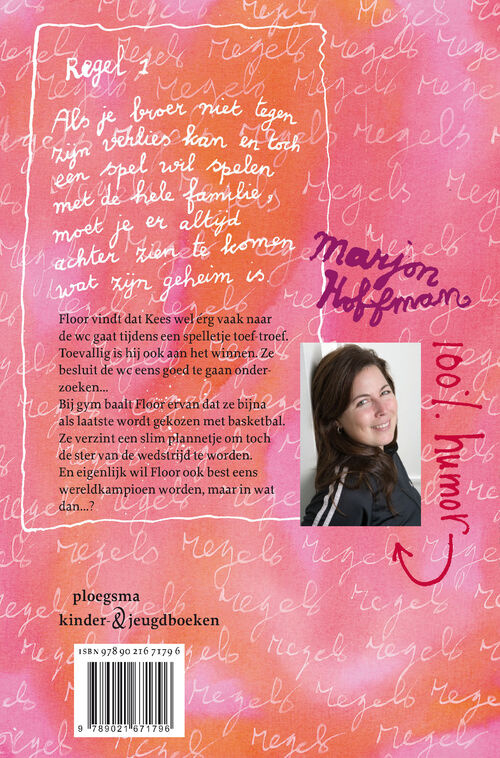 Regel 1
Als je broer niet tegen
zijn verlies kan en toch
een spel wil spelen
met de hele familie,
moet je er altijd
achter zien te komen
wat zijn geheim is.
Marjon
Hoffman
Floor vindt dat Kees wel erg vaak naar
de wc gaat tijdens een spelletje toef-troef.
Toevallig is hij ook aan het winnen. Ze
besluit de wc eens goed te gaan onder-
zoeken...
Bij gym baalt Floor ervan dat ze bijna
als laatste wordt gekozen met basketbal.
Ze verzint een slim plannetje om toch
de ster van de wedstrijd te worden.
En eigenlijk wil Floor ook best eens
wereldkampioen worden, maar in wat
dan...?
100% humor
ploegsma
kinder- & jeugdboeken
ISBN 978 90 216 7179 6
9 789021 671796
regels regels regels